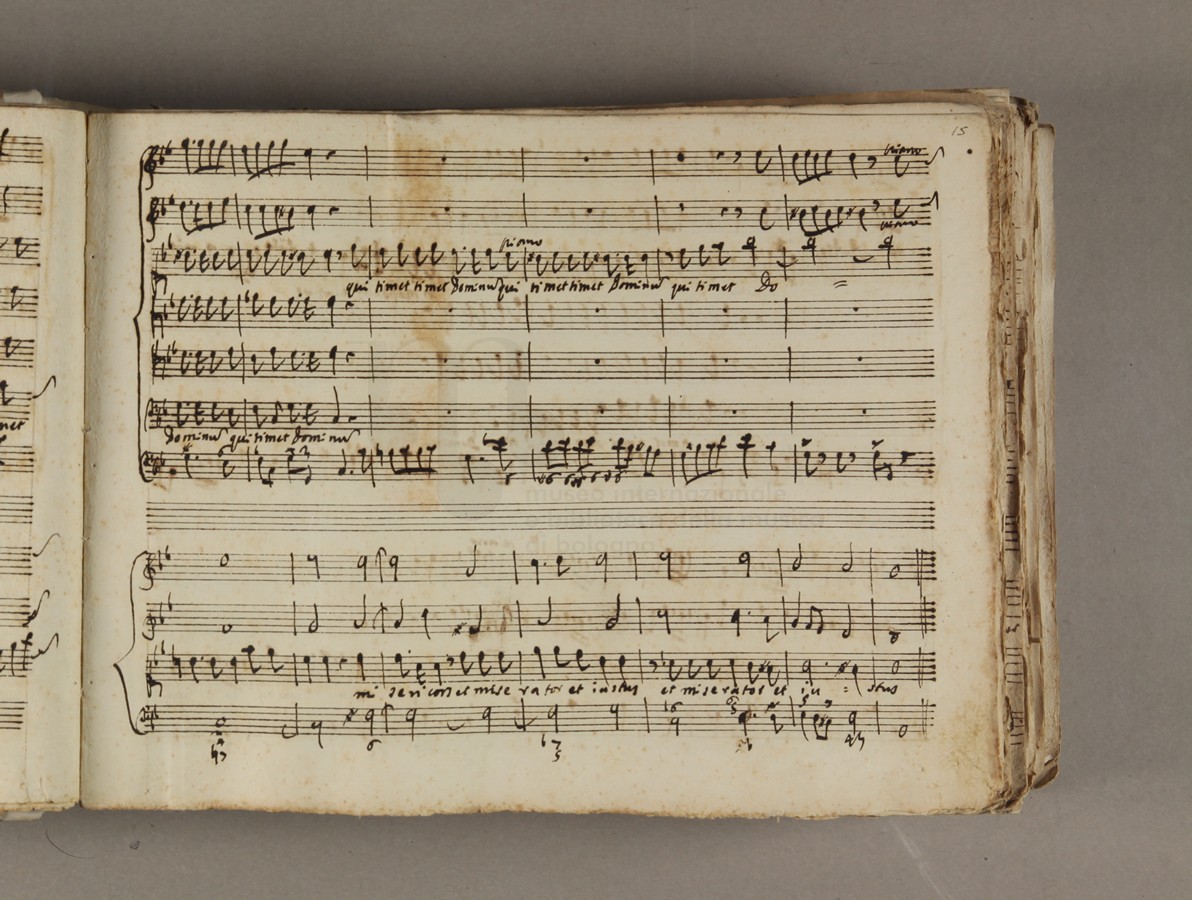 15
piano
piano
piano
qui timet timet Dominus qui timet timet Dominus qui timet Do =
Dominus qui timet Dominus
museo internazionale
e biblioteca della musica
di bologna
misericors et miserator et iustus et miserator et iu = stus